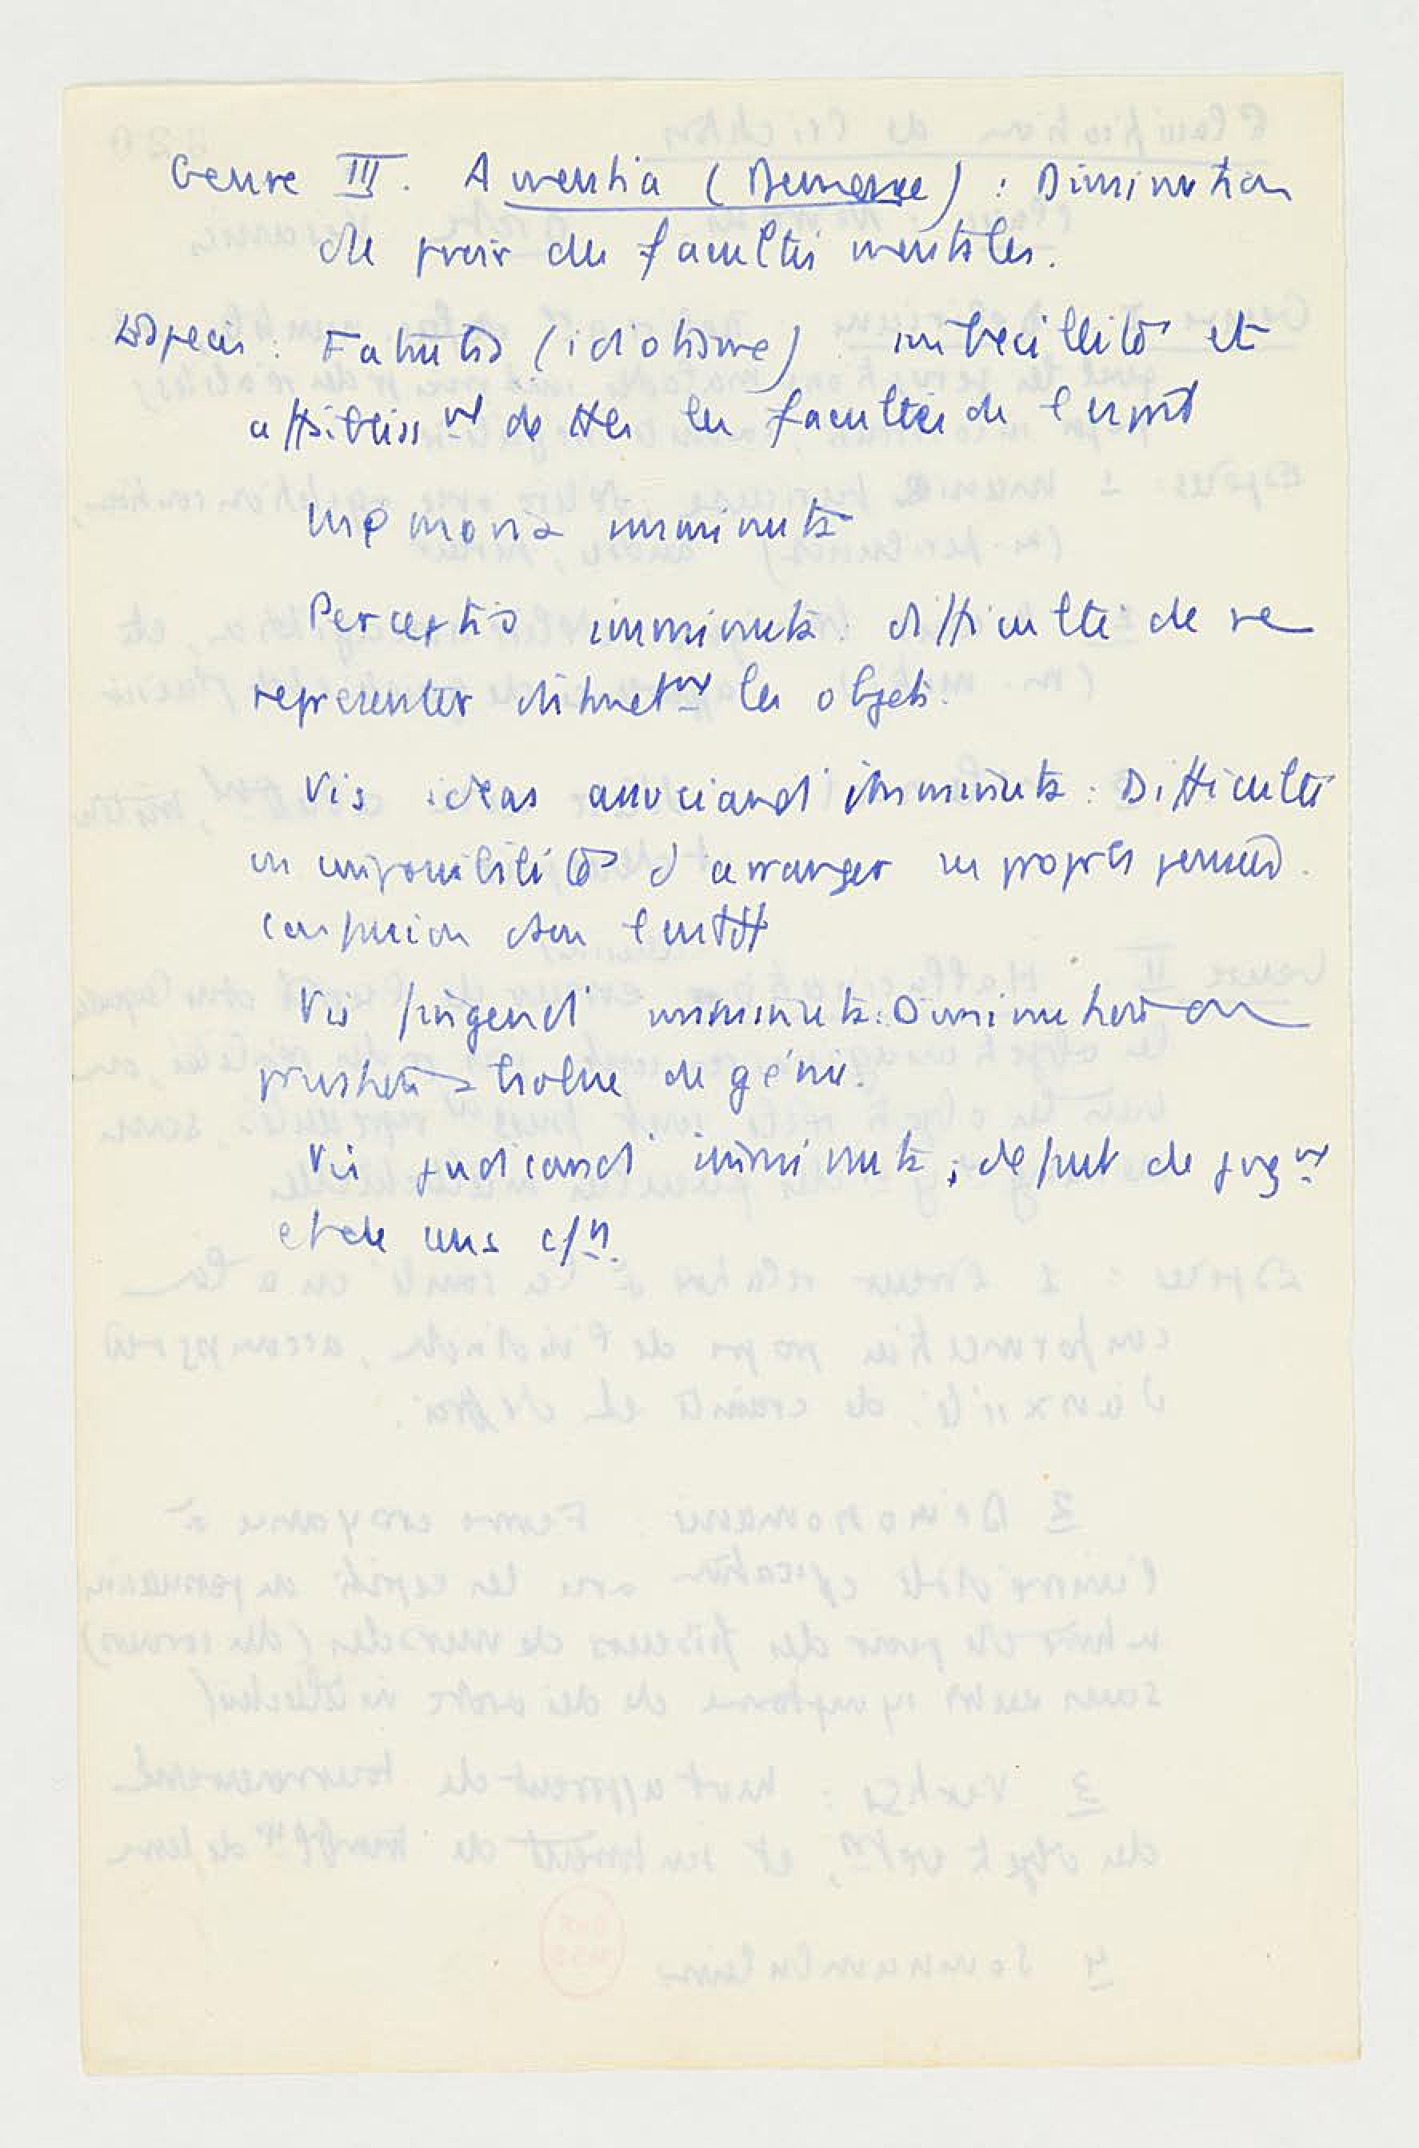 Genre III. Amentia (Démence) : Diminution
du pvoir des facultés mentales.
Espèces : Fatuitas (idiotisme) : imbécillité et
affaibliss^nt de ttes les facultés de l'esprit
Memoria imminuta
Perceptio imminuta : difficulté de se
représenter distinct^nt les objets.
Vis ideas associandi imminuta : Difficulté
ou impossibilité d'arranger ses propres pensées.
Confusion dans l'intell
Vis fingendi imminuta : Diminution ou
totale de génie.
Vis judicandi imminuta ; défaut de jug^nt
et de sens c/^n.